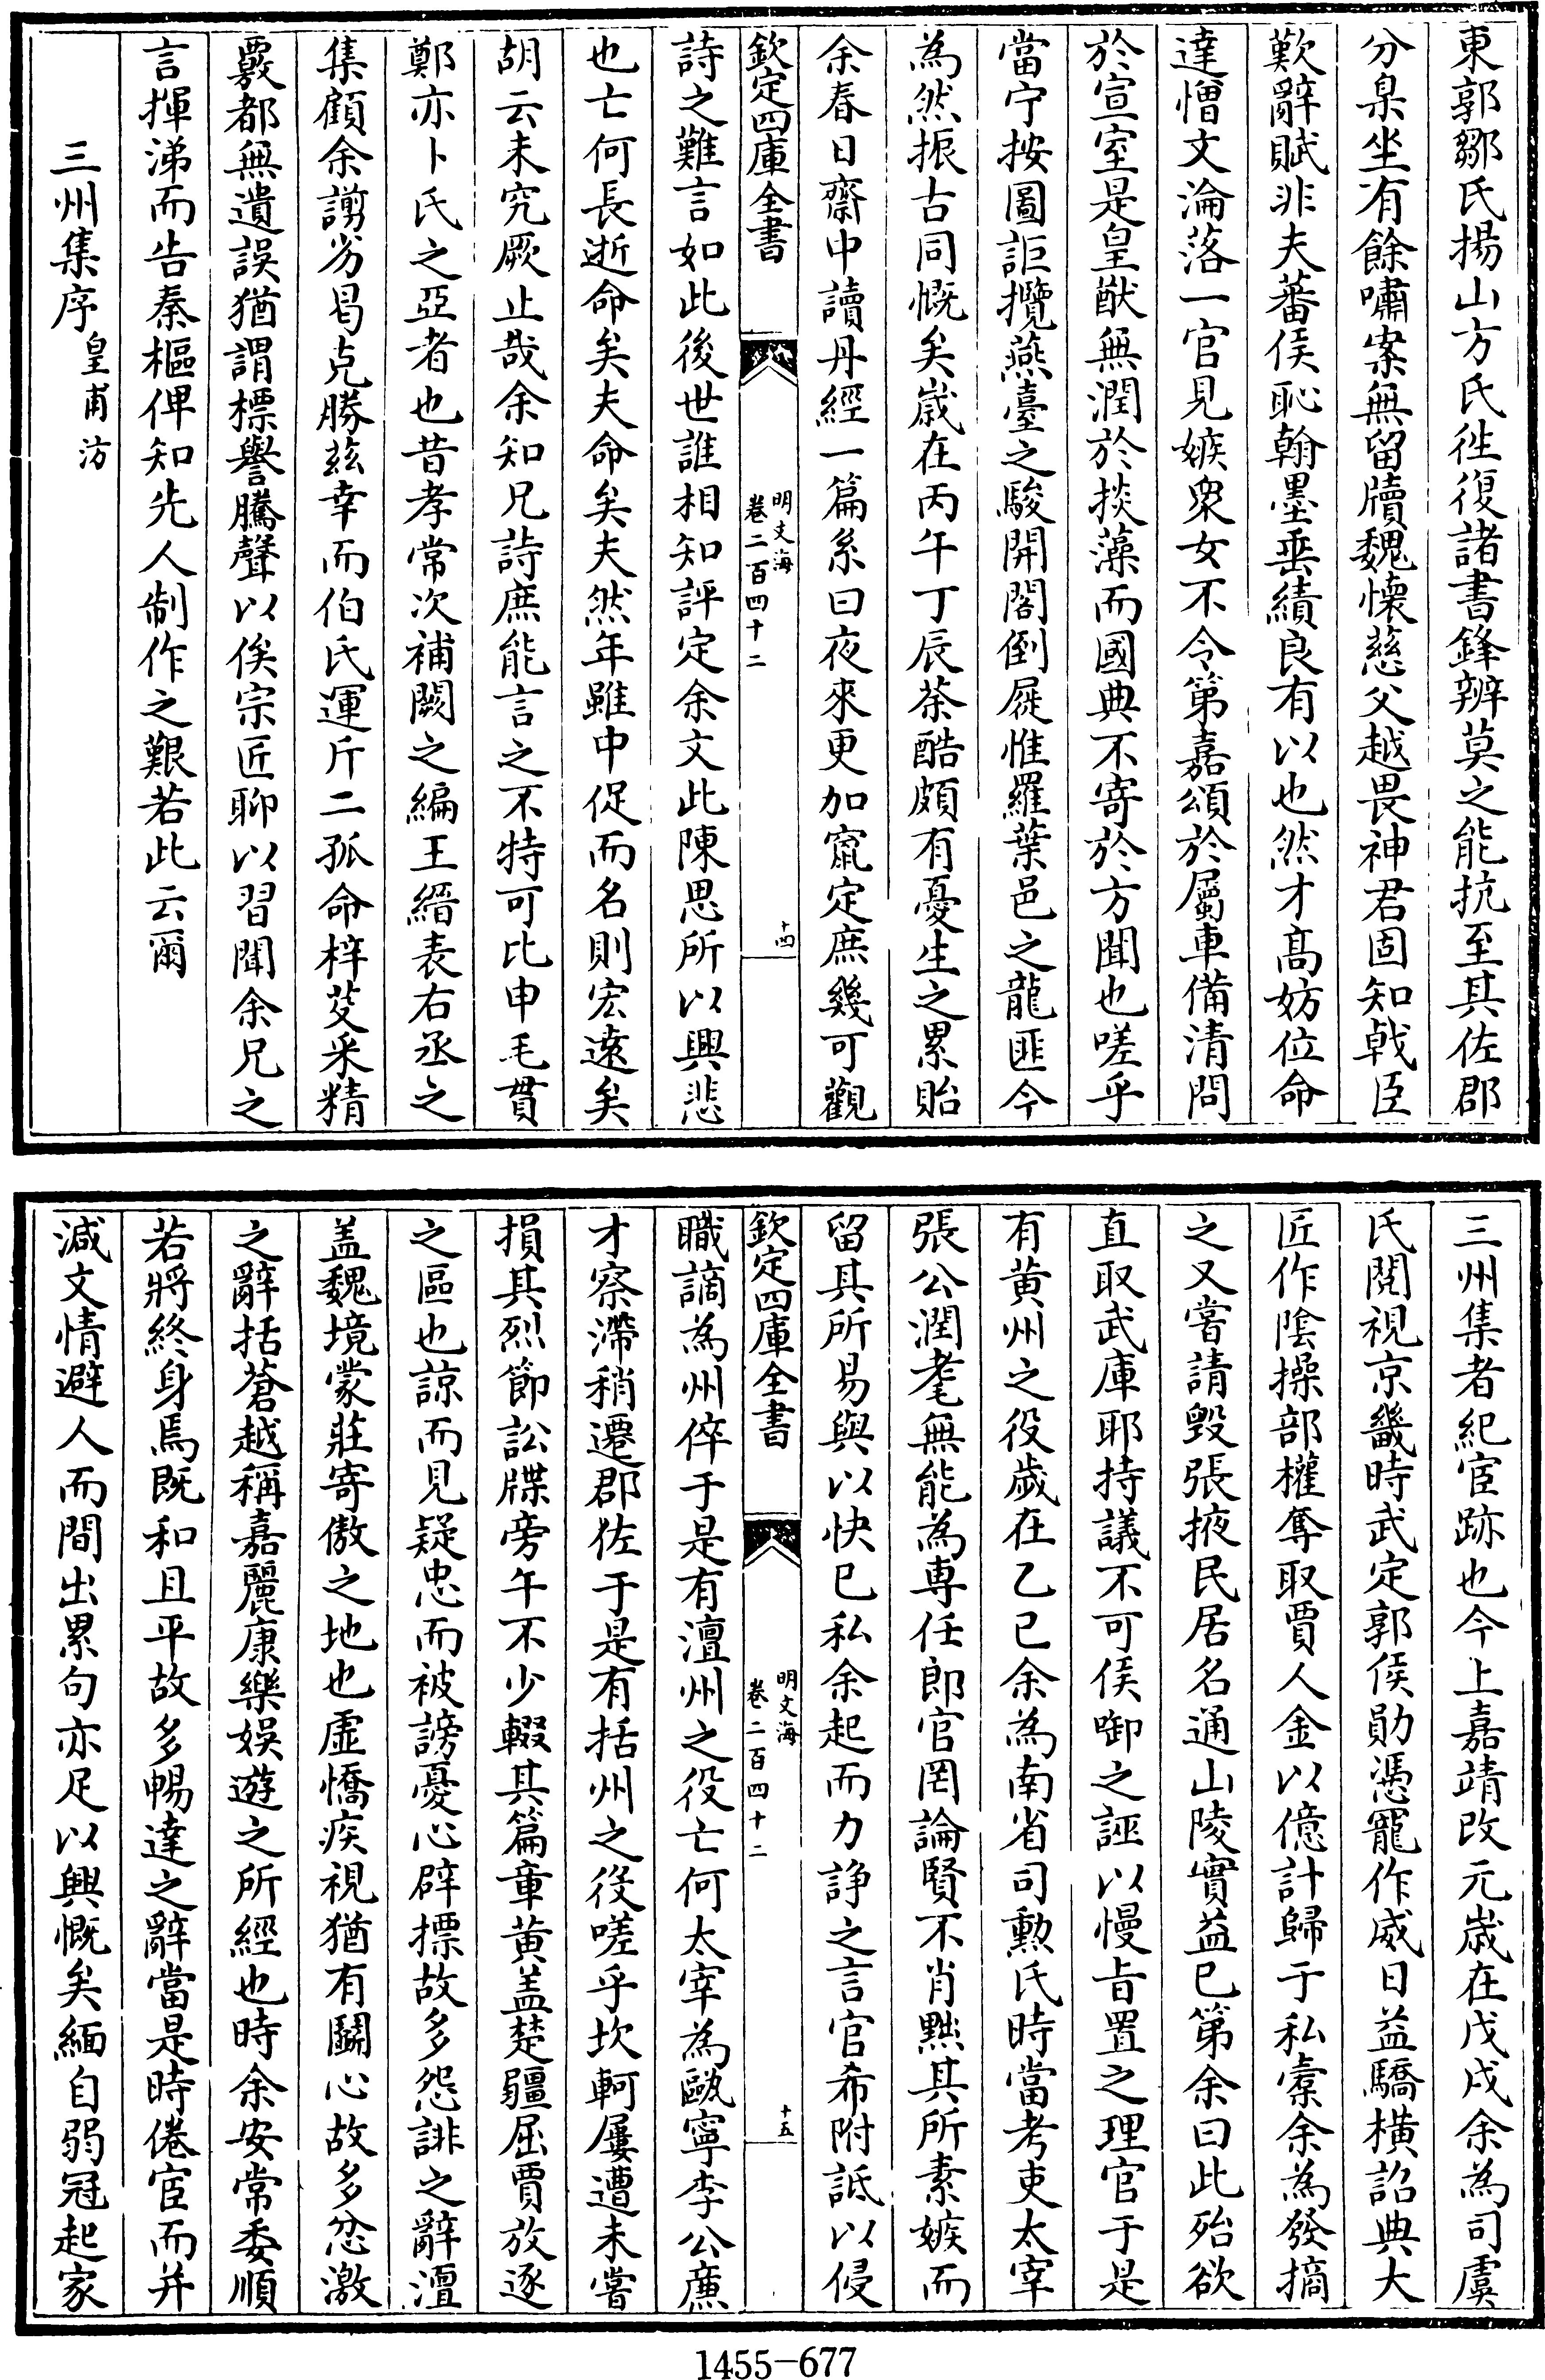 東郭鄒氏揚山方氏徃復諸書鋒辨莫之能抗至其佐郡
分臬坐有餘嘯案無留牘魏懷慈父越畏神君固知戟臣
歎辭賦非夫蕃侯恥翰墨垂績良有以也然才髙妨位命
達憎文淪落一官見嫉衆女不令第嘉頌於屬車備清問
於宣室是皇猷無潤於掞藻而國典不寄於方聞也嗟乎
當宁按圖詎攬燕臺之駿開閣倒屣惟羅葉邑之龍匪今
為然振古同慨矣歲在丙午丁辰荼酷頗有憂生之累貽
余春日齋中讀丹經一篇系曰夜來更加竄定庶幾可觀
欽定四庫全書
明文海
卷二百四十二
十四
詩之難言如此後世誰相知評定余文此陳思所以興悲
也亡何長逝命矣夫命矣夫然年雖中促而名則宏遠矣
胡云未究厥止哉余知兄詩庶能言之不特可比申毛貫
鄭亦卜氏之亞者也昔孝常次補闕之編王縉表右丞之
集顧余謭劣曷克勝兹幸而伯氏運斤二孤命梓芟采精
覈都無遺誤猶謂標譽騰聲以俟宗匠聊以習聞余兄之
言揮涕而告秦樞俾知先人制作之艱若此云爾
三州集序 皇甫汸
三州集者紀宦跡也今上嘉靖改元歲在戊戌余為司虞
氏閱視京畿時武定郭侯勛憑寵作威日益驕橫詔典大
匠作陰操部權奪取賈人金以億計歸于私橐余為發摘
之又嘗請毀張掖民居名通山陵實益已第余曰此殆欲
直取武庫耶持議不可侯啣之誣以慢㫖置之理官于是
有黄州之役歲在乙巳余為南省司勲氏時當考吏太宰
張公潤耄無能為専任郎官罔論賢不肖黜其所素嫉而
留其所易與以快已私余起而力諍之言官希附詆以侵
欽定四庫全書
明文海
卷二百四十二
十五
職謫為州倅于是有澶州之役亡何太宰為甌寧李公廉
才察滯稍遷郡佐于是有括州之役嗟乎坎軻屢遭未嘗
損其烈節訟牒旁午不少輟其篇章黄盖楚疆屈賈放逐
之區也諒而見疑忠而被謗憂心辟摽故多怨誹之辭澶
盖魏境蒙莊寄傲之地也虛憍疾視猶有鬭心故多忿激
之辭括蒼越稱嘉麗康樂娛遊之所經也時余安常委順
若將終身焉既和且平故多暢達之辭當是時倦宦而并
減文情避人而間出累句亦足以興慨矣緬自弱冠起家
1455-677